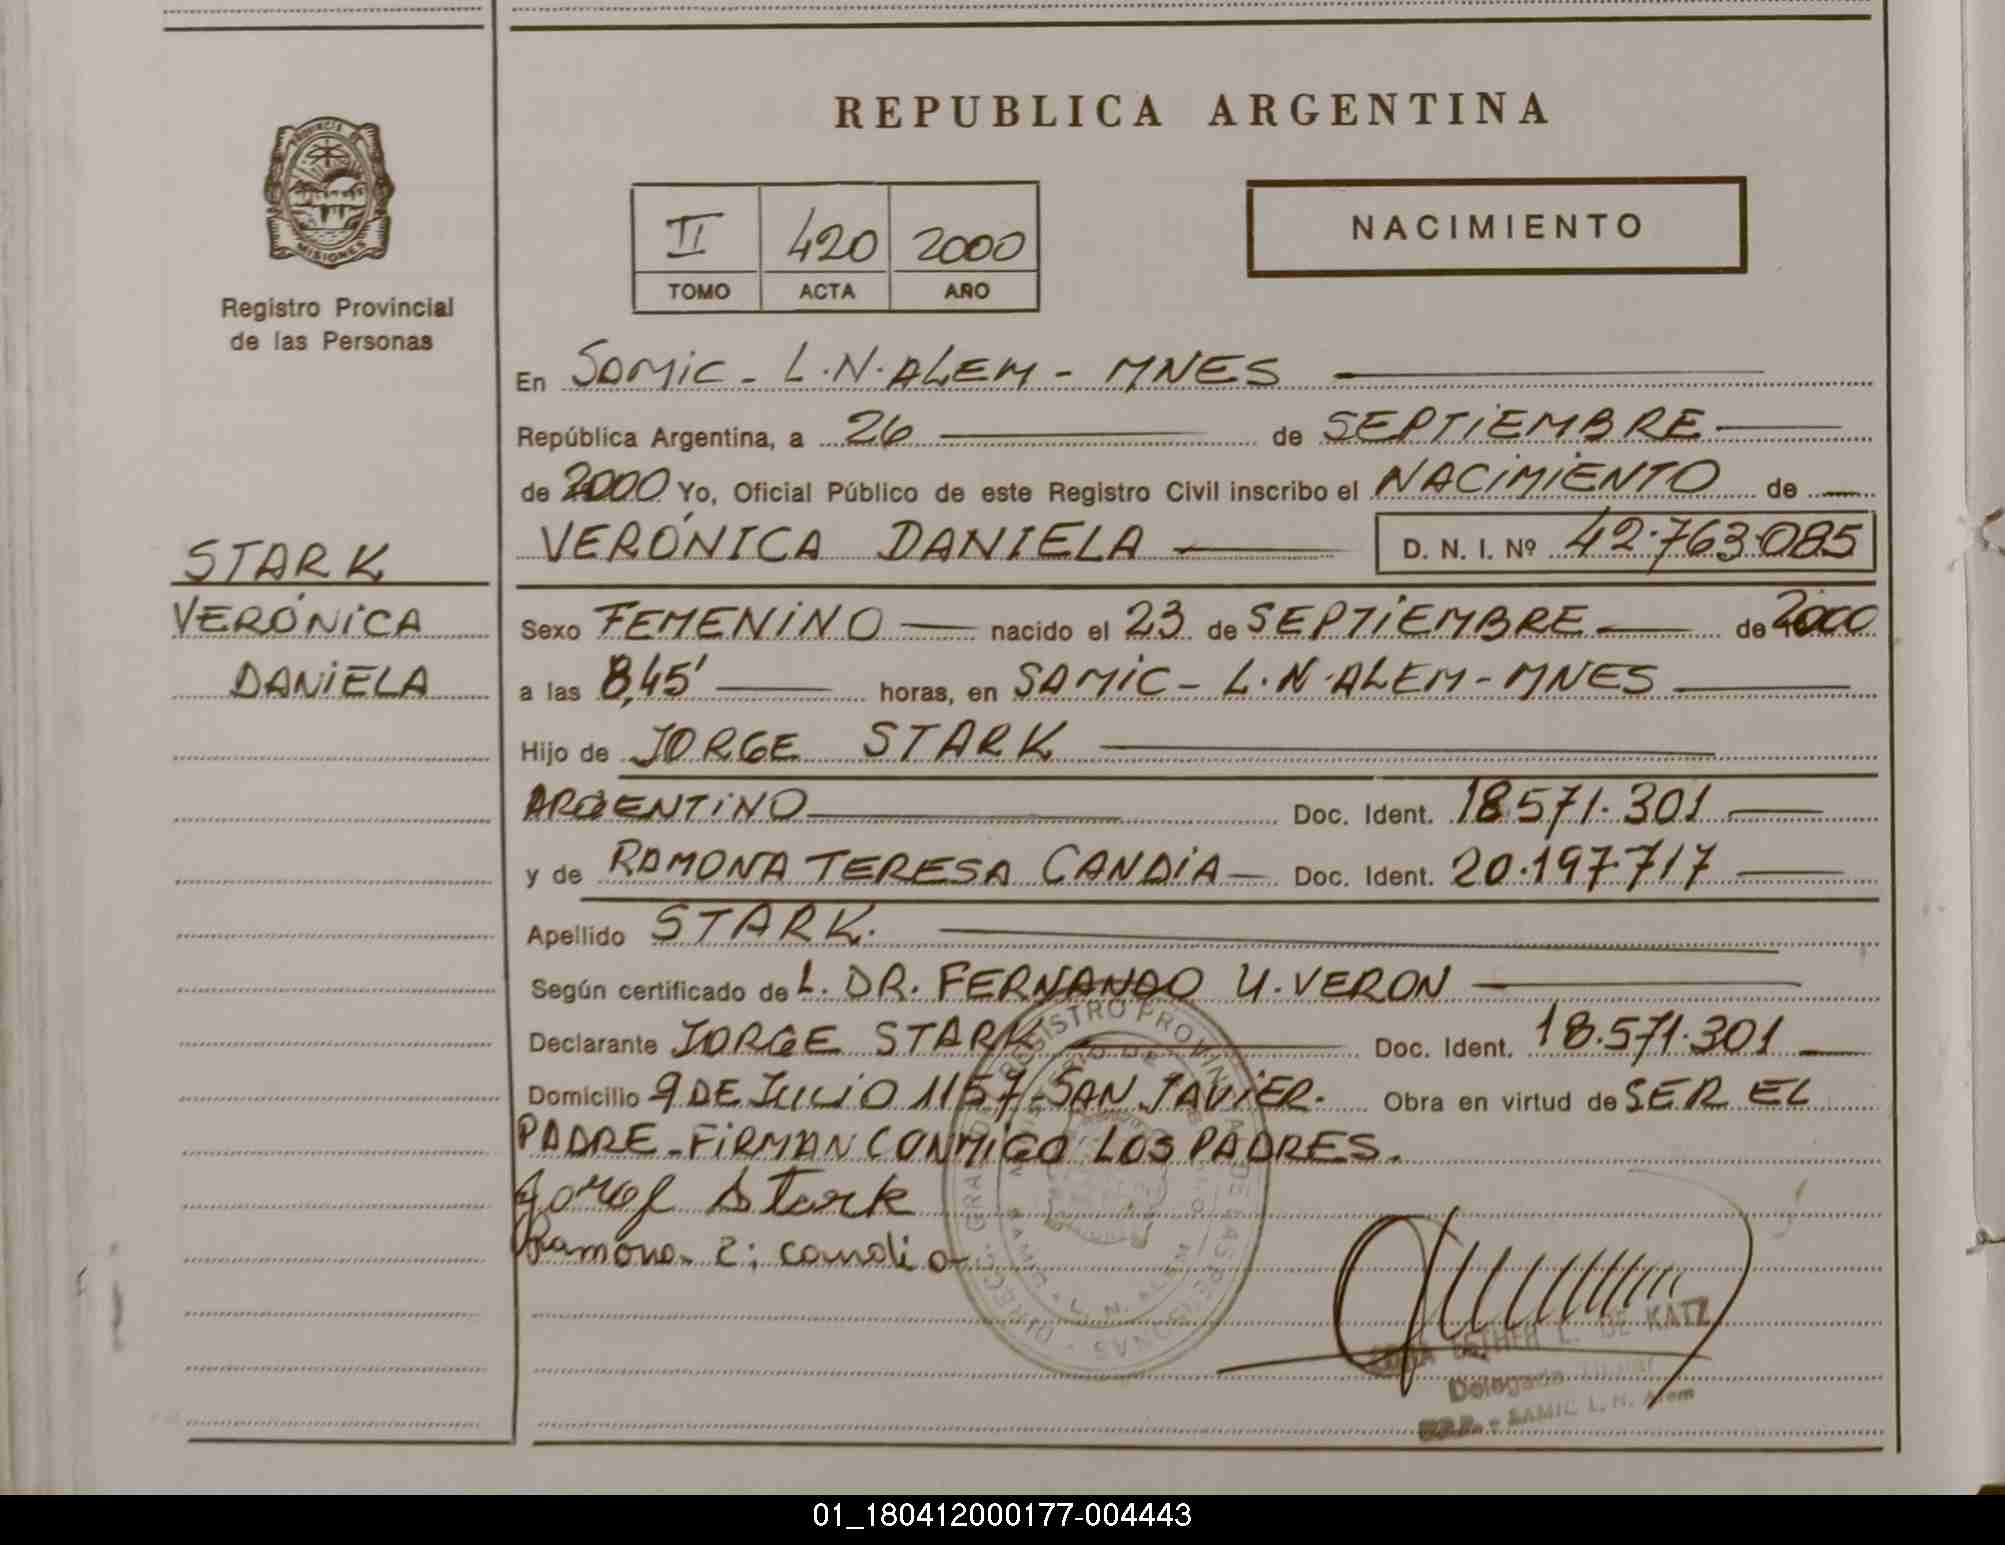 REPUBLICA ARGENTINA
PROVINCIA DE
MISIONES
Registro Provincial
de las Personas
II 420 2000
TOMO ACTA AÑO
NACIMIENTO
En SAMIC - L.N.ALEM - MNES
República Argentina, a 26 de SEPTIEMBRE
de 2000 Yo, Oficial Público de este Registro Civil inscribo el NACIMIENTO de
VERÓNICA DANIELA D. N. I. Nº 42.763.085
STARK
VERÓNICA
DANIELA
Sexo FEMENINO nacido el 23 de SEPTIEMBRE de 2000
a las 8,45' horas, en SAMIC - L.N.ALEM - MNES
Hijo de JORGE STARK
ARGENTINO Doc. Ident. 18.571.301
y de RAMONA TERESA CANDIA Doc. Ident. 20.197.717
Apellido STARK.
Según certificado de L. DR. FERNANDO U. VERON
Declarante JORGE STARK Doc. Ident. 18.571.301
Domicilio 9 DE JULIO 1157 - SAN JAVIER. Obra en virtud de SER EL
PADRE - FIRMAN CONMIGO LOS PADRES.
Jorge Stark
Ramona candia
REGISTRO PROVINCIAL DE LAS PERSONAS
L. N. ALEM
ESTHER L. DE KATZ
Delegada Titular
SAMIC L. N. Alem
01_180412000177-004443